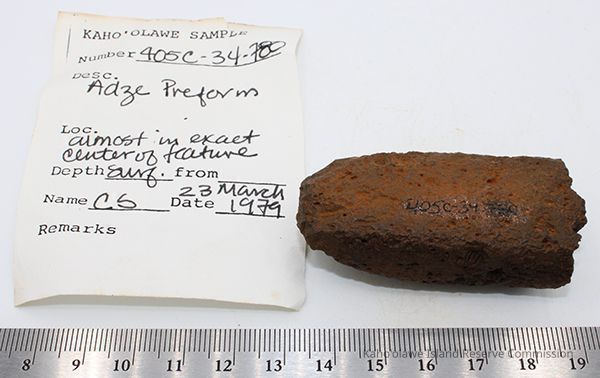 KAHO'OLAWE SAMPLE
Number 405C-34-780
Desc.
Adze Preform
Loc.
almost in exact
center of feature
Depth surf. from
Name CS Date 23 March
1979
Remarks
405C-34
8 9 10 11 12 13 14 15 16 17 18 19
Kaho'olawe Island Reserve Commission